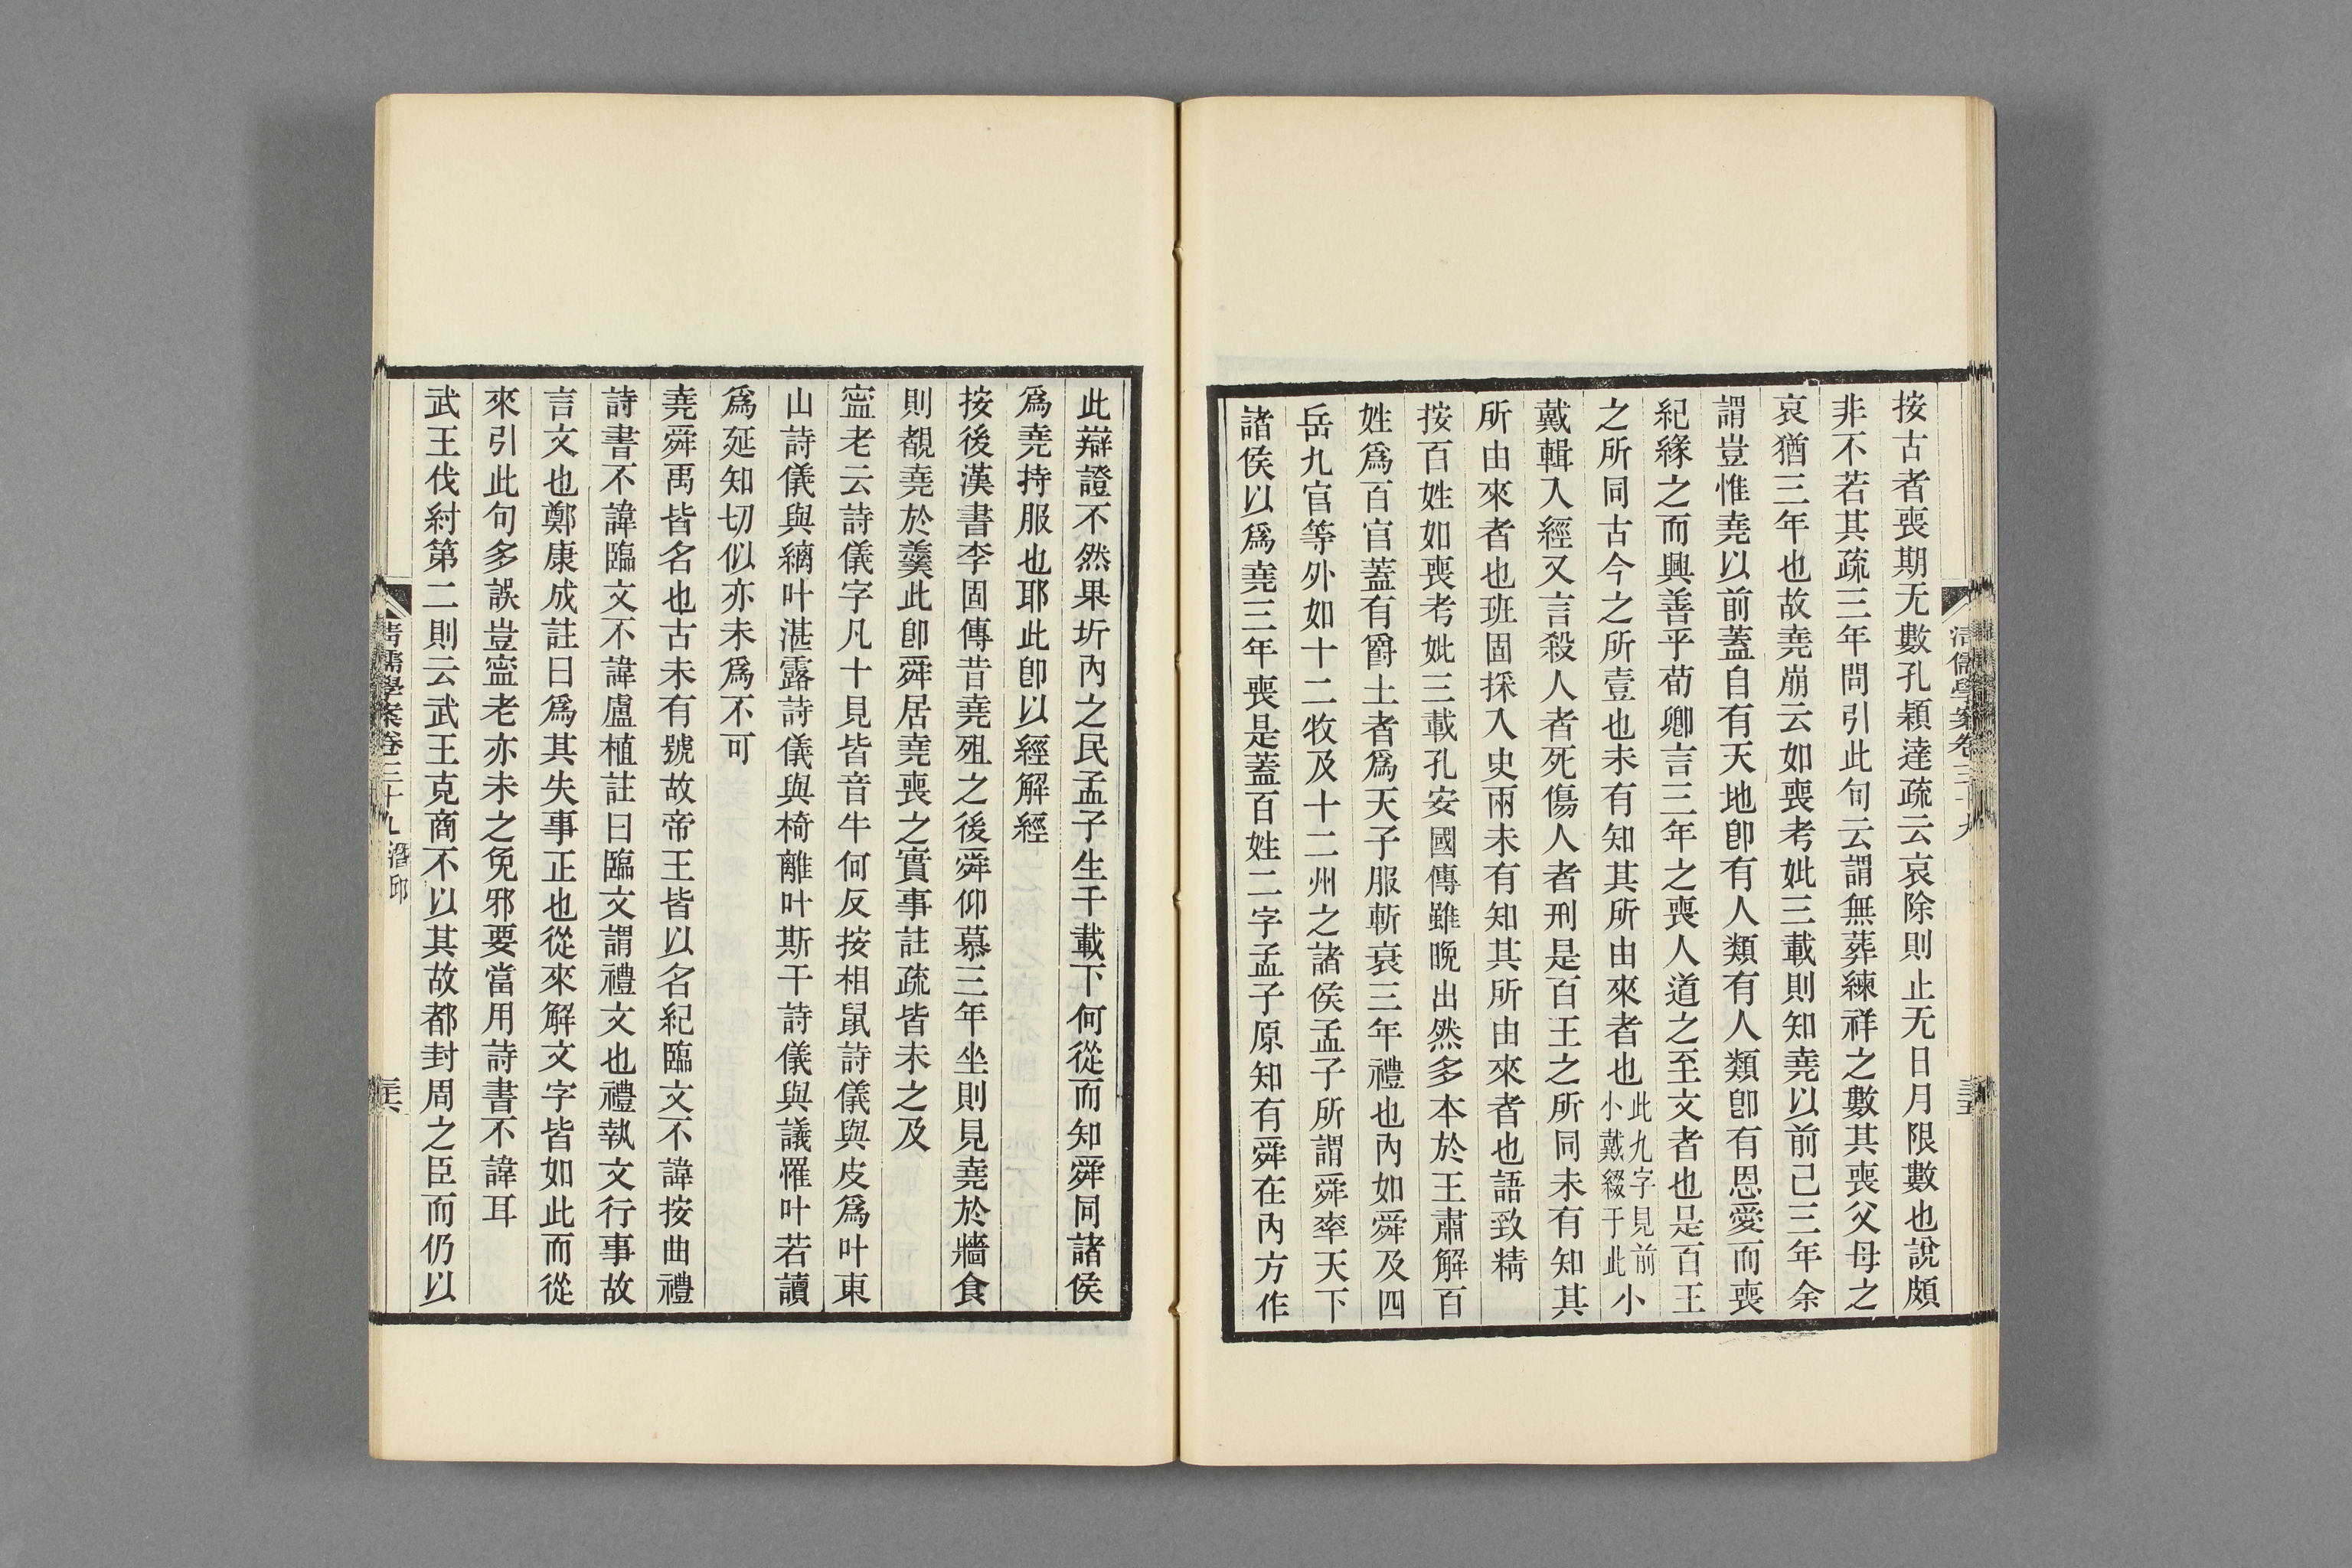 按古者喪期无數孔穎達疏云哀除則止无日月限數也說頗
非不若其疏三年問引此句云謂無葬練祥之數其喪父母之
哀猶三年也故堯崩云如喪考妣三載則知堯以前已三年余
謂豈惟堯以前蓋自有天地卽有人類有人類卽有恩愛而喪
紀緣之而興善乎荀卿言三年之喪人道之至文者也是百王
之所同古今之所壹也未有知其所由來者也此九字見前小戴綴于此小
戴輯入經又言殺人者死傷人者刑是百王之所同未有知其
所由來者也班固採入史兩未有知其所由來者也語致精
按百姓如喪考妣三載孔安國傳雖晚出然多本於王肅解百
姓爲百官蓋有爵土者爲天子服斬衰三年禮也內如舜及四
岳九官等外如十二牧及十二州之諸侯孟子所謂舜率天下
諸侯以爲堯三年喪是蓋百姓二字孟子原知有舜在內方作
清儒學案卷三十九
三五
此辯證不然果圻內之民孟子生千載下何從而知舜同諸侯
爲堯持服也耶此卽以經解經
按後漢書李固傳昔堯殂之後舜仰慕三年坐則見堯於牆食
則覩堯於羹此卽舜居堯喪之實事註疏皆未之及
寍老云詩儀字凡十見皆音牛何反按相鼠詩儀與皮爲叶東
山詩儀與縭叶湛露詩儀與椅離叶斯干詩儀與議罹叶若讀
爲延知切似亦未爲不可
堯舜禹皆名也古未有號故帝王皆以名紀臨文不諱按曲禮
詩書不諱臨文不諱盧植註曰臨文謂禮文也禮執文行事故
言文也鄭康成註曰爲其失事正也從來解文字皆如此而從
來引此句多誤豈寍老亦未之免邪要當用詩書不諱耳
武王伐紂第二則云武王克商不以其故都封周之臣而仍以
清儒學案卷三十九 潛邱
三六